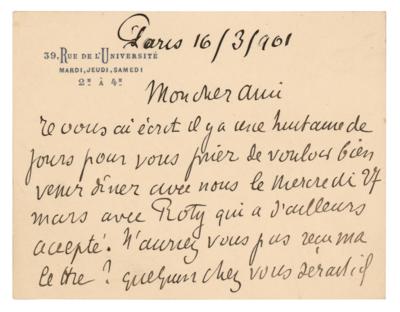 Paris 16/3/901
39, RUE DE L'UNIVERSITÉ
MARDI, JEUDI, SAMEDI
2ᴴ À 4ᴴ
Mon cher ami
Je vous ai écrit il y a une huitaine de
jours pour vous prier de vouloir bien
venir dîner avec nous le mercredi 27
mars avec Roty qui a d'ailleurs
accepté. N'auriez vous pas reçu ma
lettre ? quelqu'un chez vous serait il